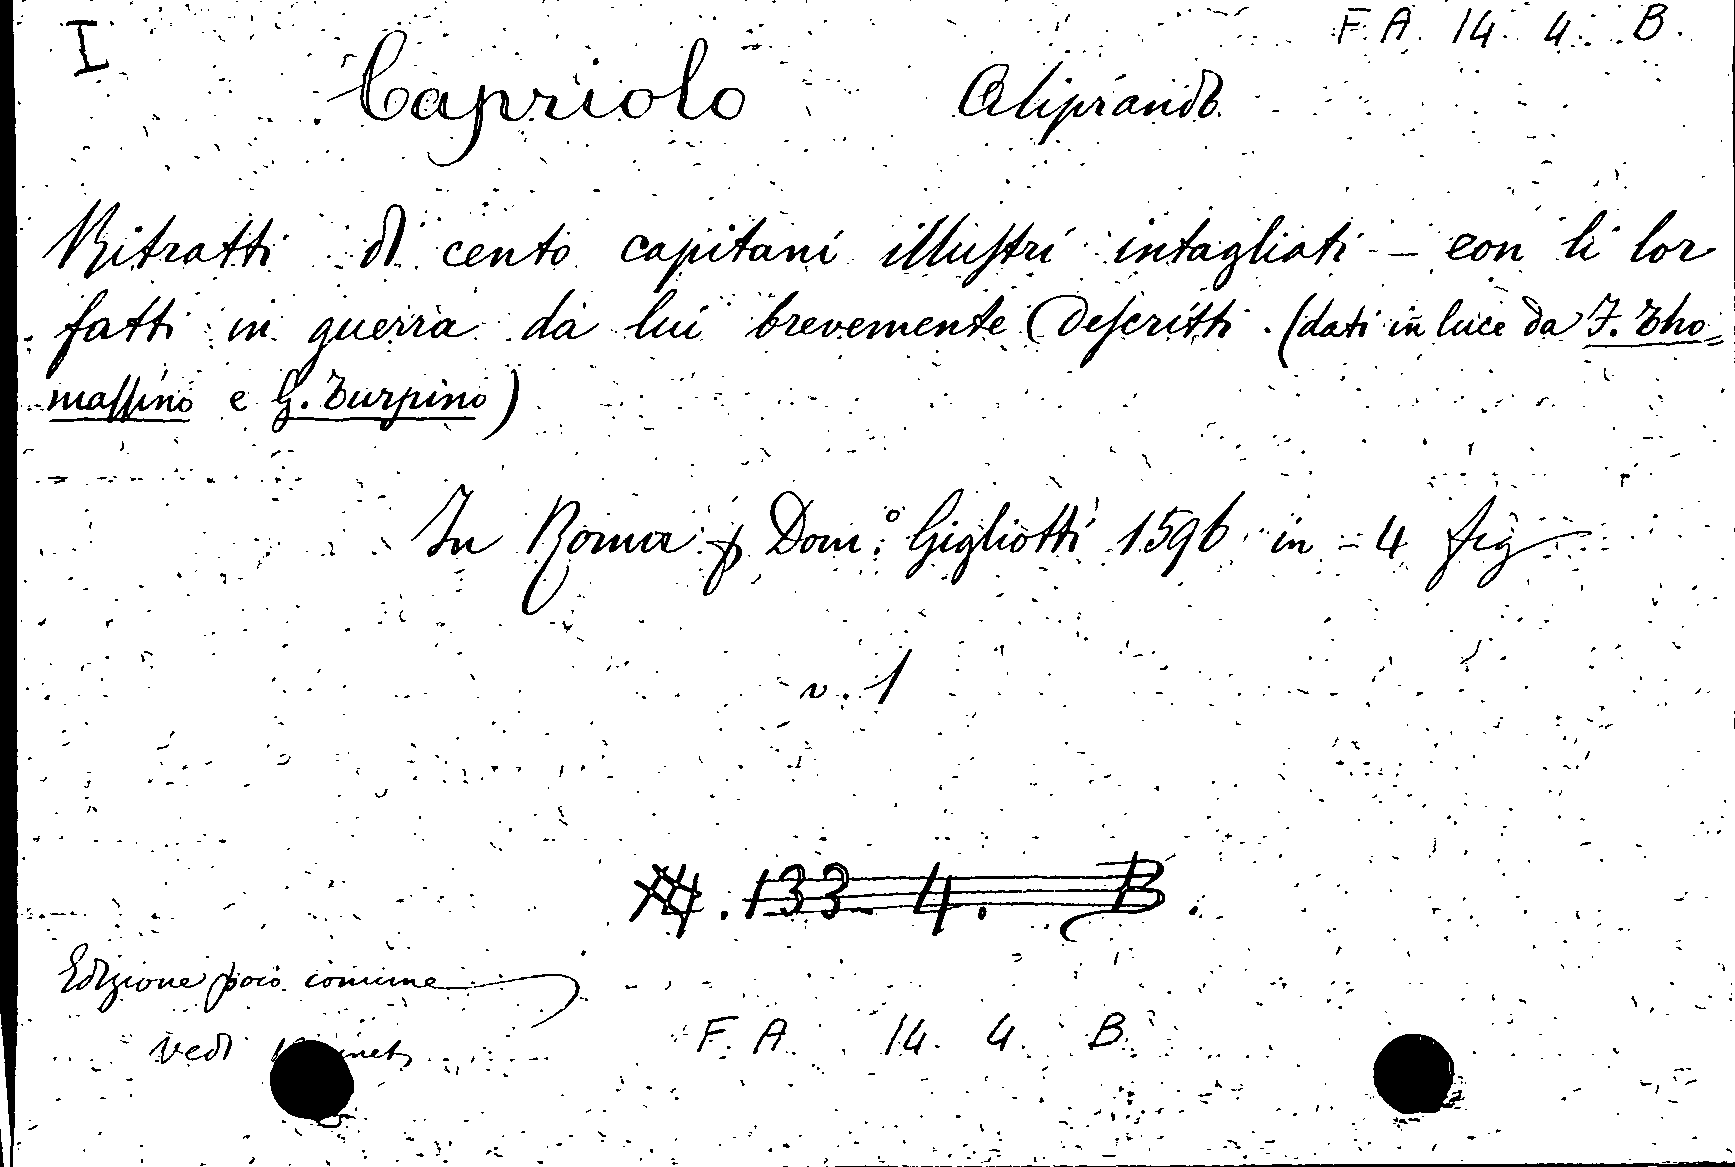 I
F. A. 14. 4. B.
Capriolo Aliprando
Ritratti di cento capitani illustri intagliati - con li lor
fatti in guerra da lui brevemente descritti. (dati in luce da F. Tho=
massino e G. Turpino)
In Roma p Dom.º Gigliotti 1596 in-4 fig
v. 1
N. 133 4. B.
Edizione poco comune
vedi
F. A. 14. 4. B.